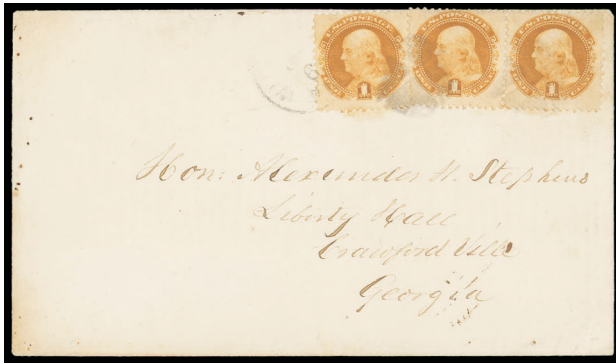 U.S. POSTAGE U.S. POSTAGE U.S. POSTAGE
1 1 1
Hon: Alexander H. Stephens
Liberty Hall
Crawford Ville
Georgia